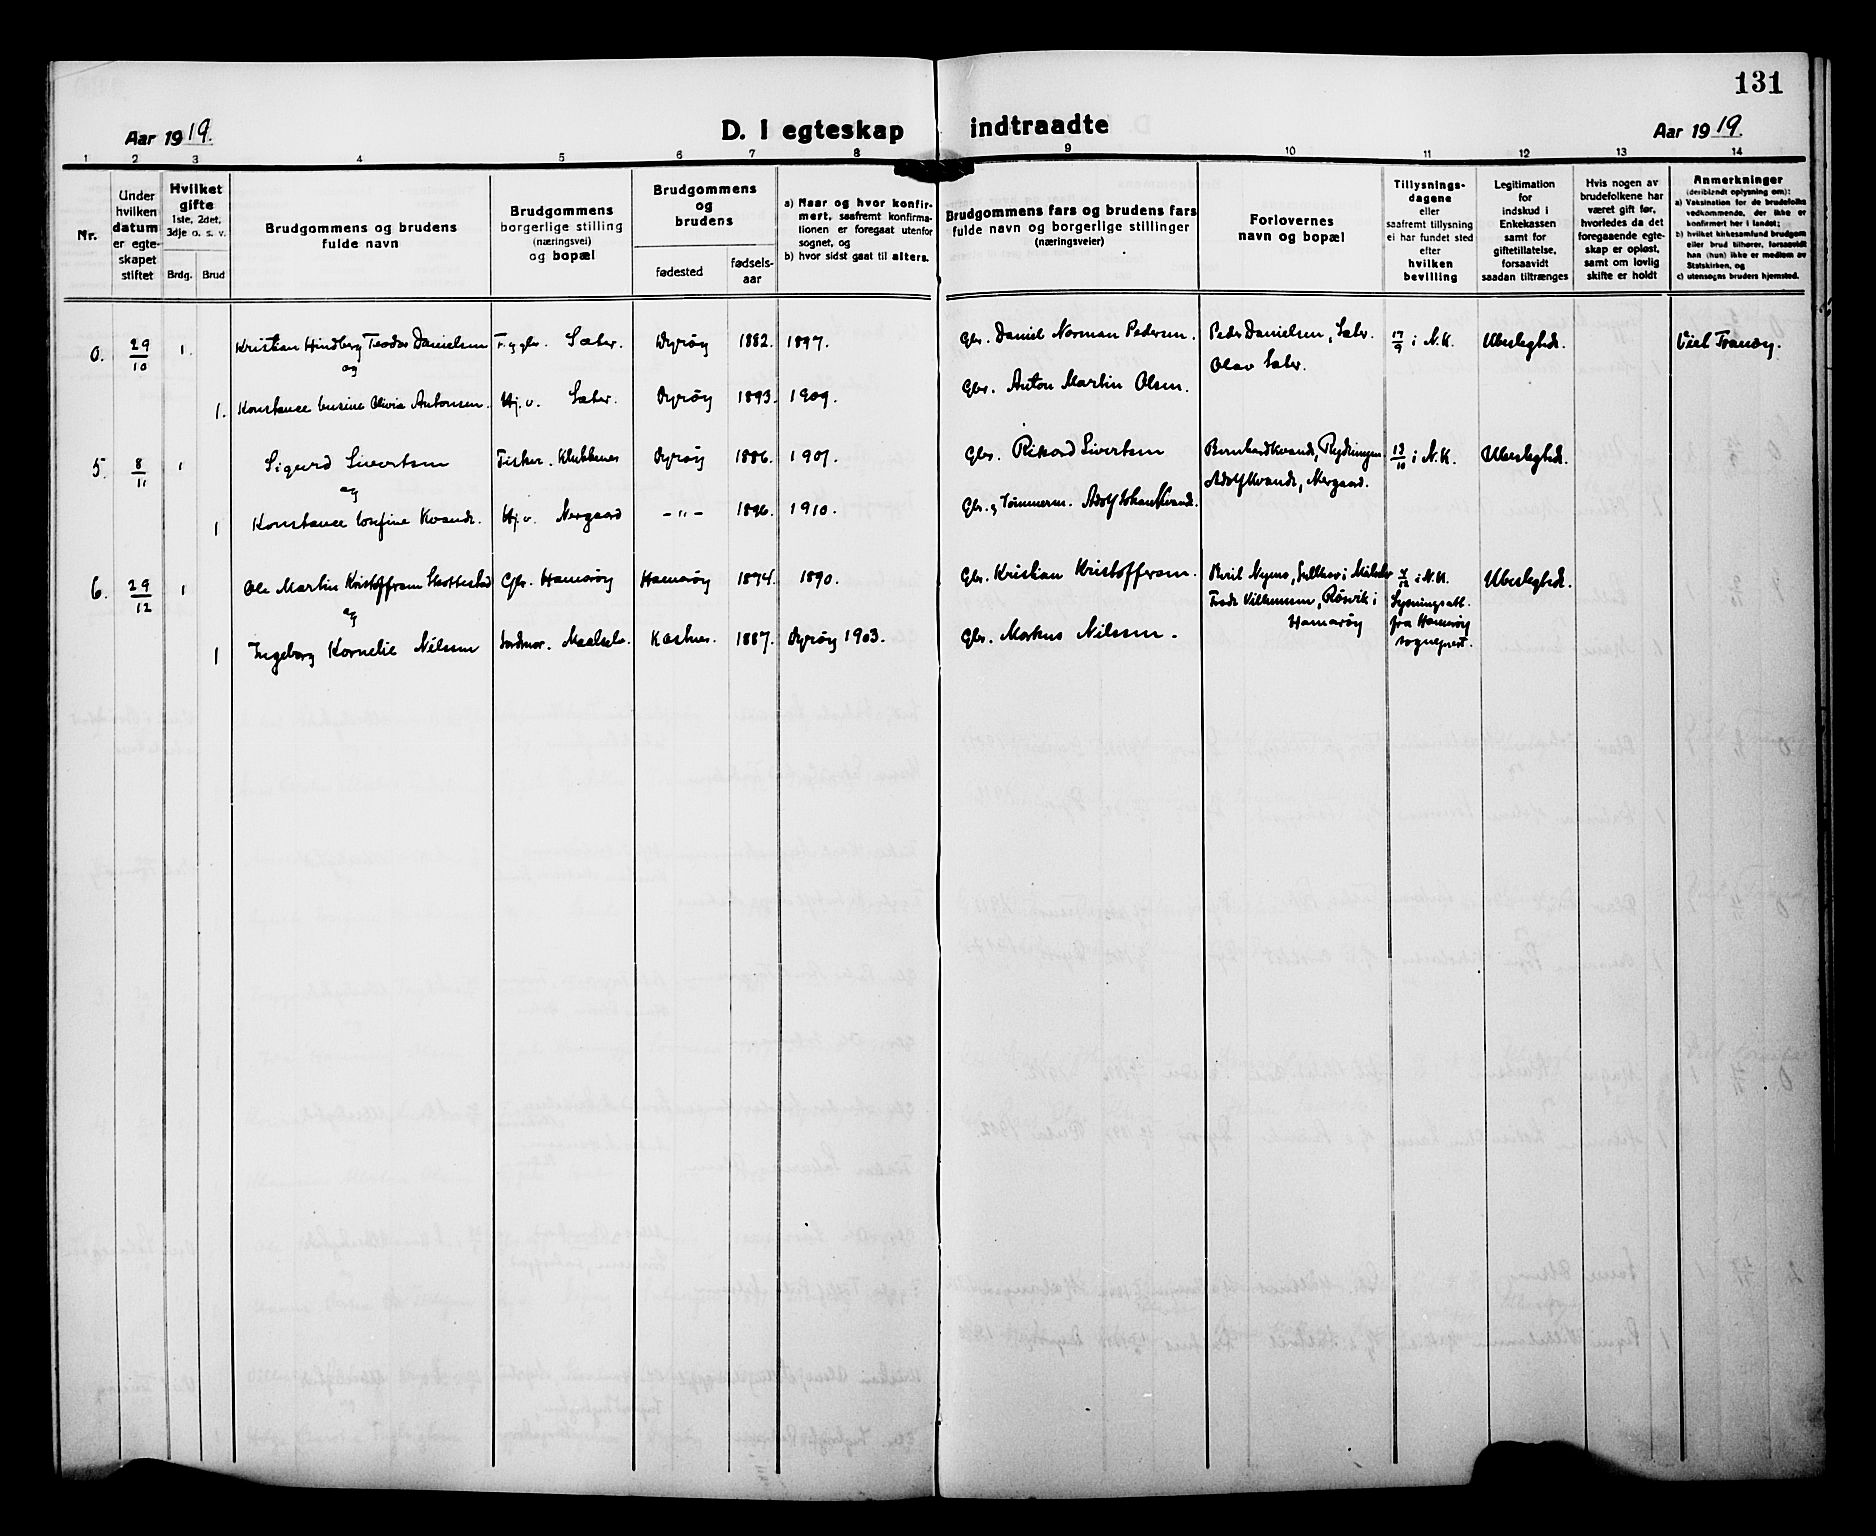 131
Aar 1919.
D. I egteskap indtraadte
Aar 1919.
1 2 3 4 5 6 7 8 9 10 11 12 13 14
Nr.
Under hvilken datum er egteskapet stiftet
Hvilket gifte 1ste, 2det, 3dje o. s. v.
Brdg. Brud
Brudgommens og brudens fulde navn
Brudgommens borgerlige stilling (næringsvei) og bopæl
Brudgommens og brudens
fødested
fødselsaar
a) Naar og hvor konfirmert, saafremt konfirmationen er foregaat utenfor sognet, og
b) hvor sidst gaat til alters.
Brudgommens fars og brudens fars fulde navn og borgerlige stillinger (næringsveier)
Forlovernes navn og bopæl
Tillysningsdagene eller saafremt tillysning ei har fundet sted efter hvilken bevilling
Legitimation for indskud i Enkekassen samt for giftetillatelse, forsaavidt saadan tiltrænges
Hvis nogen av brudefolkene har været gift før, hvorledes da det foregaaende egteskap er opløst, samt om lovlig skifte er holdt
Anmerkninger (deriblandt oplysning om):
a) Vaksination for de brudefolks vedkommende, der ikke er konfirmert her i landet;
b) hvilket kirkesamfund brudgom eller brud tilhører, forsaavidt han (hun) ikke er medlem av Statskirken, og
c) utensogns bruders hjemsted.
0. 29/10 1. Kristian Hindberg Teodor Danielsen F. og gbr. Sæter. Dyrøy 1882. 1897. Gbr. Daniel Norman Pedersen. Peder Danielsen, Sæter. 17/9 i N.K. Ubeslegtede. Viet Tranøy.
og Olav Sæter.
1. Konstance Olivia Antonsen. Hj. v. Sæter. Dyrøy 1893. 1909. Gbr. Anton Martin Olsen.
5. 8/11 1 Sigurd Sivertsen Fisker. Klubbenes Dyrøy 1886. 1901. Gbr. Rikard Sivertsen Bernhard Kvande, 13/10 i N.K. Ubeslegtede.
og Adolf Kvande, Nergaard.
1 Konstance Josefine Kvande. Hj. v. Nergaard -"- 1896. 1910. Gbr. og Tømmerm. Adolf Johan Kvande.
6. 29/12 1 Ole Martin Kristoffersen Skottestad Gbr. Hamarøy Hamarøy 1874. 1890. Gbr. Kristian Kristoffersen. i N.K. Ubeslegtede.
og Vilhemsen, Røsvik i Lysningsatt.
Hamarøy fra Hamarøy
1 Ingeborg Kornelie Nilssen Jordmor. Maalselv. Kastnes. 1887. Dyrøy 1903. Gbr. Markus Nilssen. sogneprest.